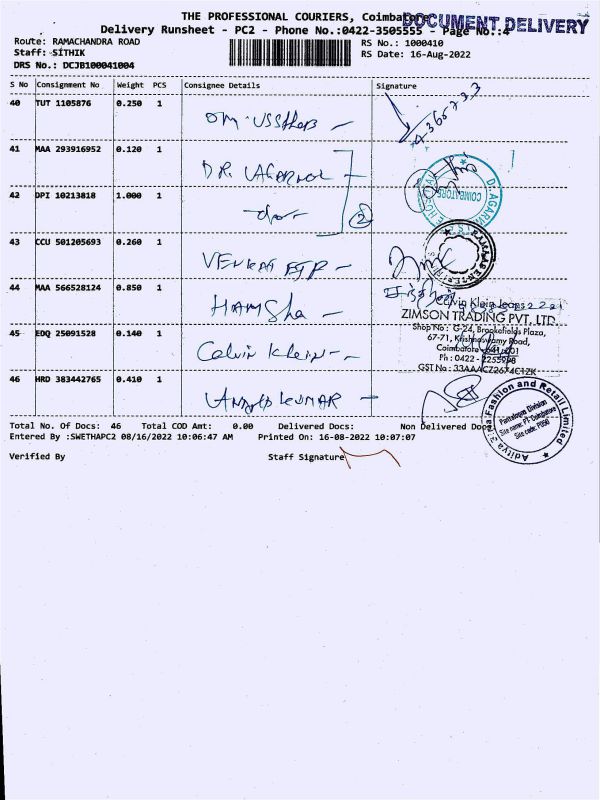 THE PROFESSIONAL COURIERS, Coimbatore
DOCUMENT DELIVERY
Delivery Runsheet - PC2 - Phone No.:0422-3505555 - Page No.:4
Route: RAMACHANDRA ROAD
RS No.: 1000410
Staff: SITHIK
RS Date: 16-Aug-2022
DRS No.: DCJB100041004
S No Consignment No Weight PCS Consignee Details Signature
40 TUT 1105876 0.250 1
41 MAA 293916952 0.120 1 DR. UAGARWAL
42 DPI 10213818 1.000 1 -do- 2
DR. AGARWAL'S EYE HOSPITAL COIMBATORE
43 CCU 501205693 0.260 1 VENKAT
44 MAA 566528124 0.850 1 HAMSha
Calvin Klein Jeans
ZIMSON TRADING PVT. LTD
Shop No : G-24, Brookefields Plaza,
67-71, Krishnaswamy Road,
Coimbatore - 641 001
45 EDQ 25091528 0.140 1 Calvin Klein
Ph : 0422 - 2255998
GST No : 33AAACZ2674C1ZK
46 HRD 383442765 0.410 1 KUMAR
Aditya Birla Fashion and Retail Limited
Pantaloons Division
Site name: PT-Coimbatore
Total No. Of Docs: 46 Total COD Amt: 0.00 Delivered Docs: Non Delivered Docs
Entered By :SWETHAPC2 08/16/2022 10:06:47 AM Printed On: 16-08-2022 10:07:07
Verified By Staff Signature